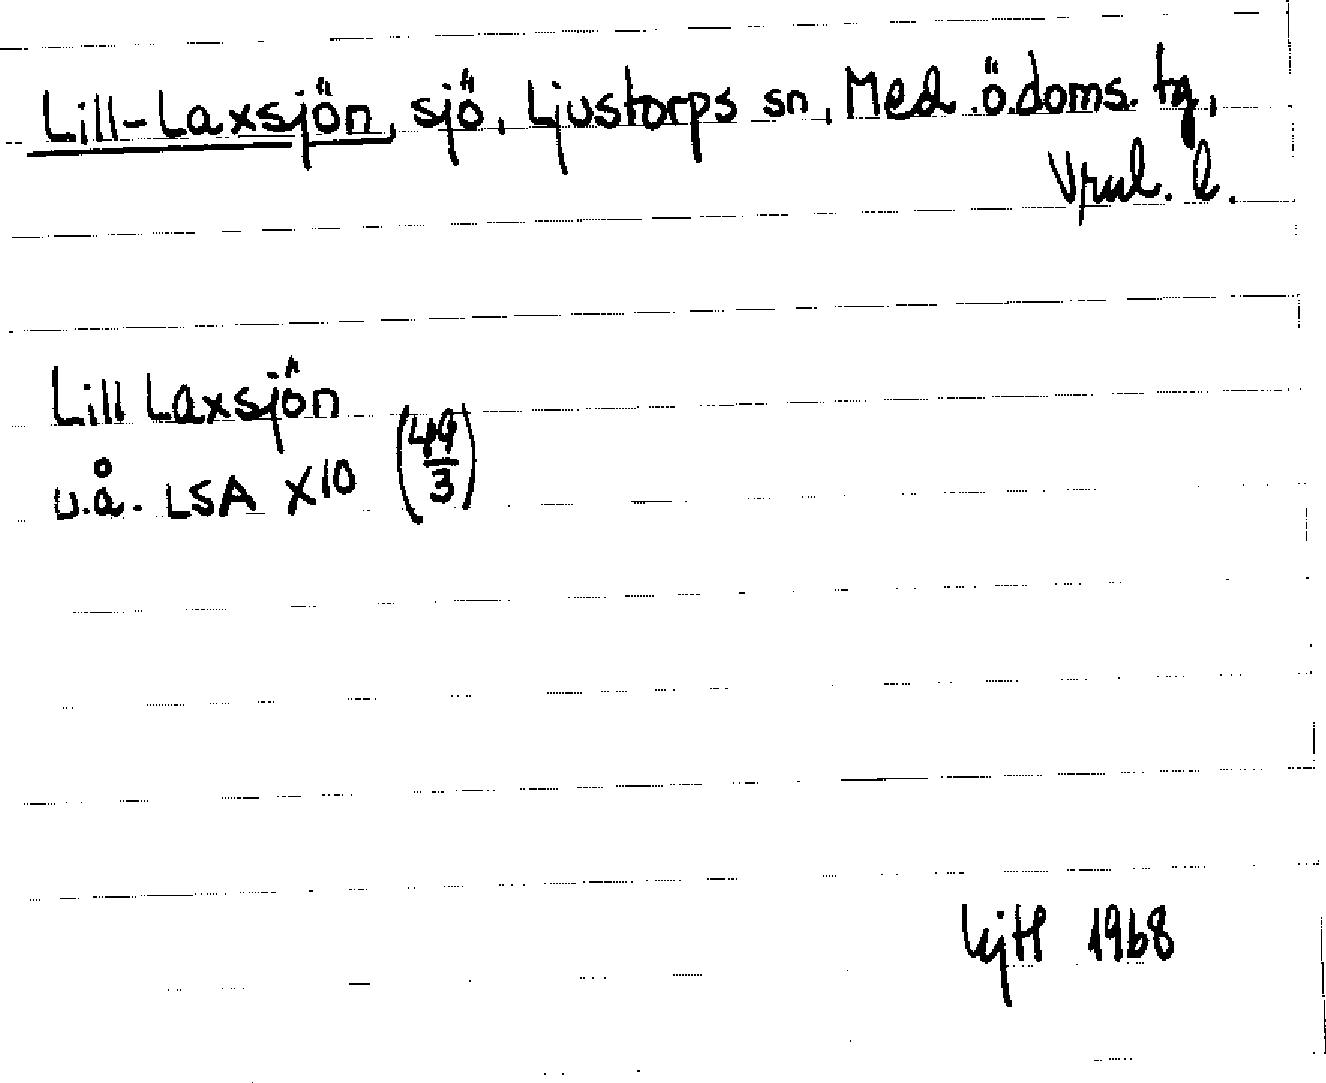 Lill-Laxsjön, sjö, Ljustorps sn, Med. ö. doms. tg,
Vrnl. l.
Lill Laxsjön
u.å. LSA X10 (49/3)
1968